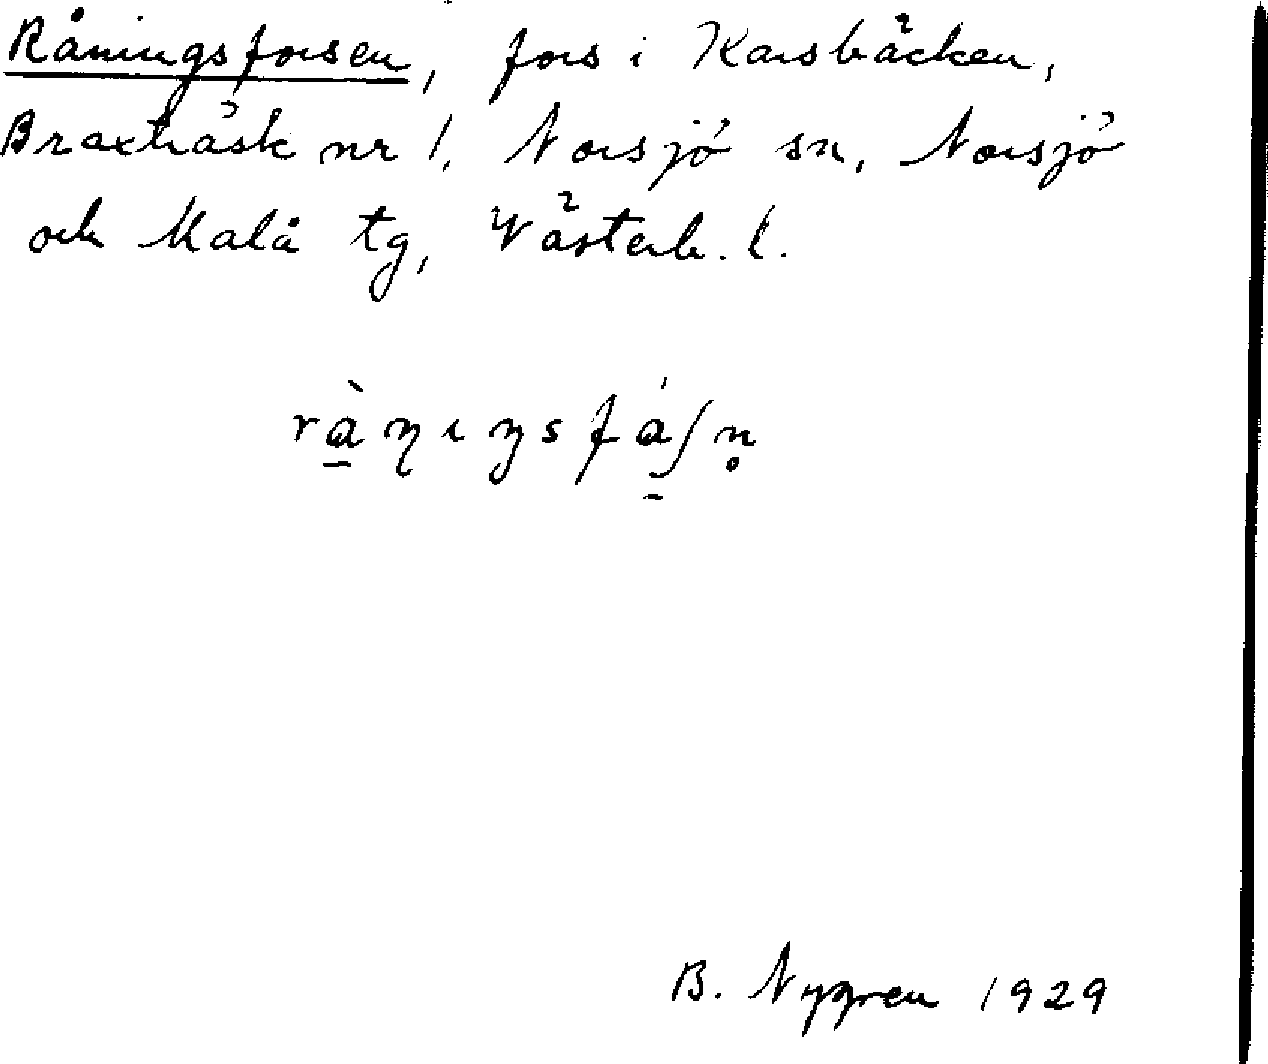 Råningsforsen, fors i Karsbäcken,
Braxträsk nr 1, Norsjö sn, Norsjö
och Malå tg, Västerb. l.
ràŋıŋsfáʃn̥
B. Nygren 1929